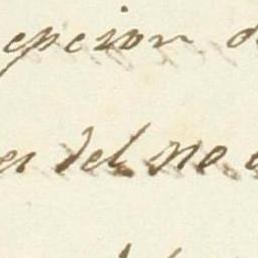 epcion d
er del ne